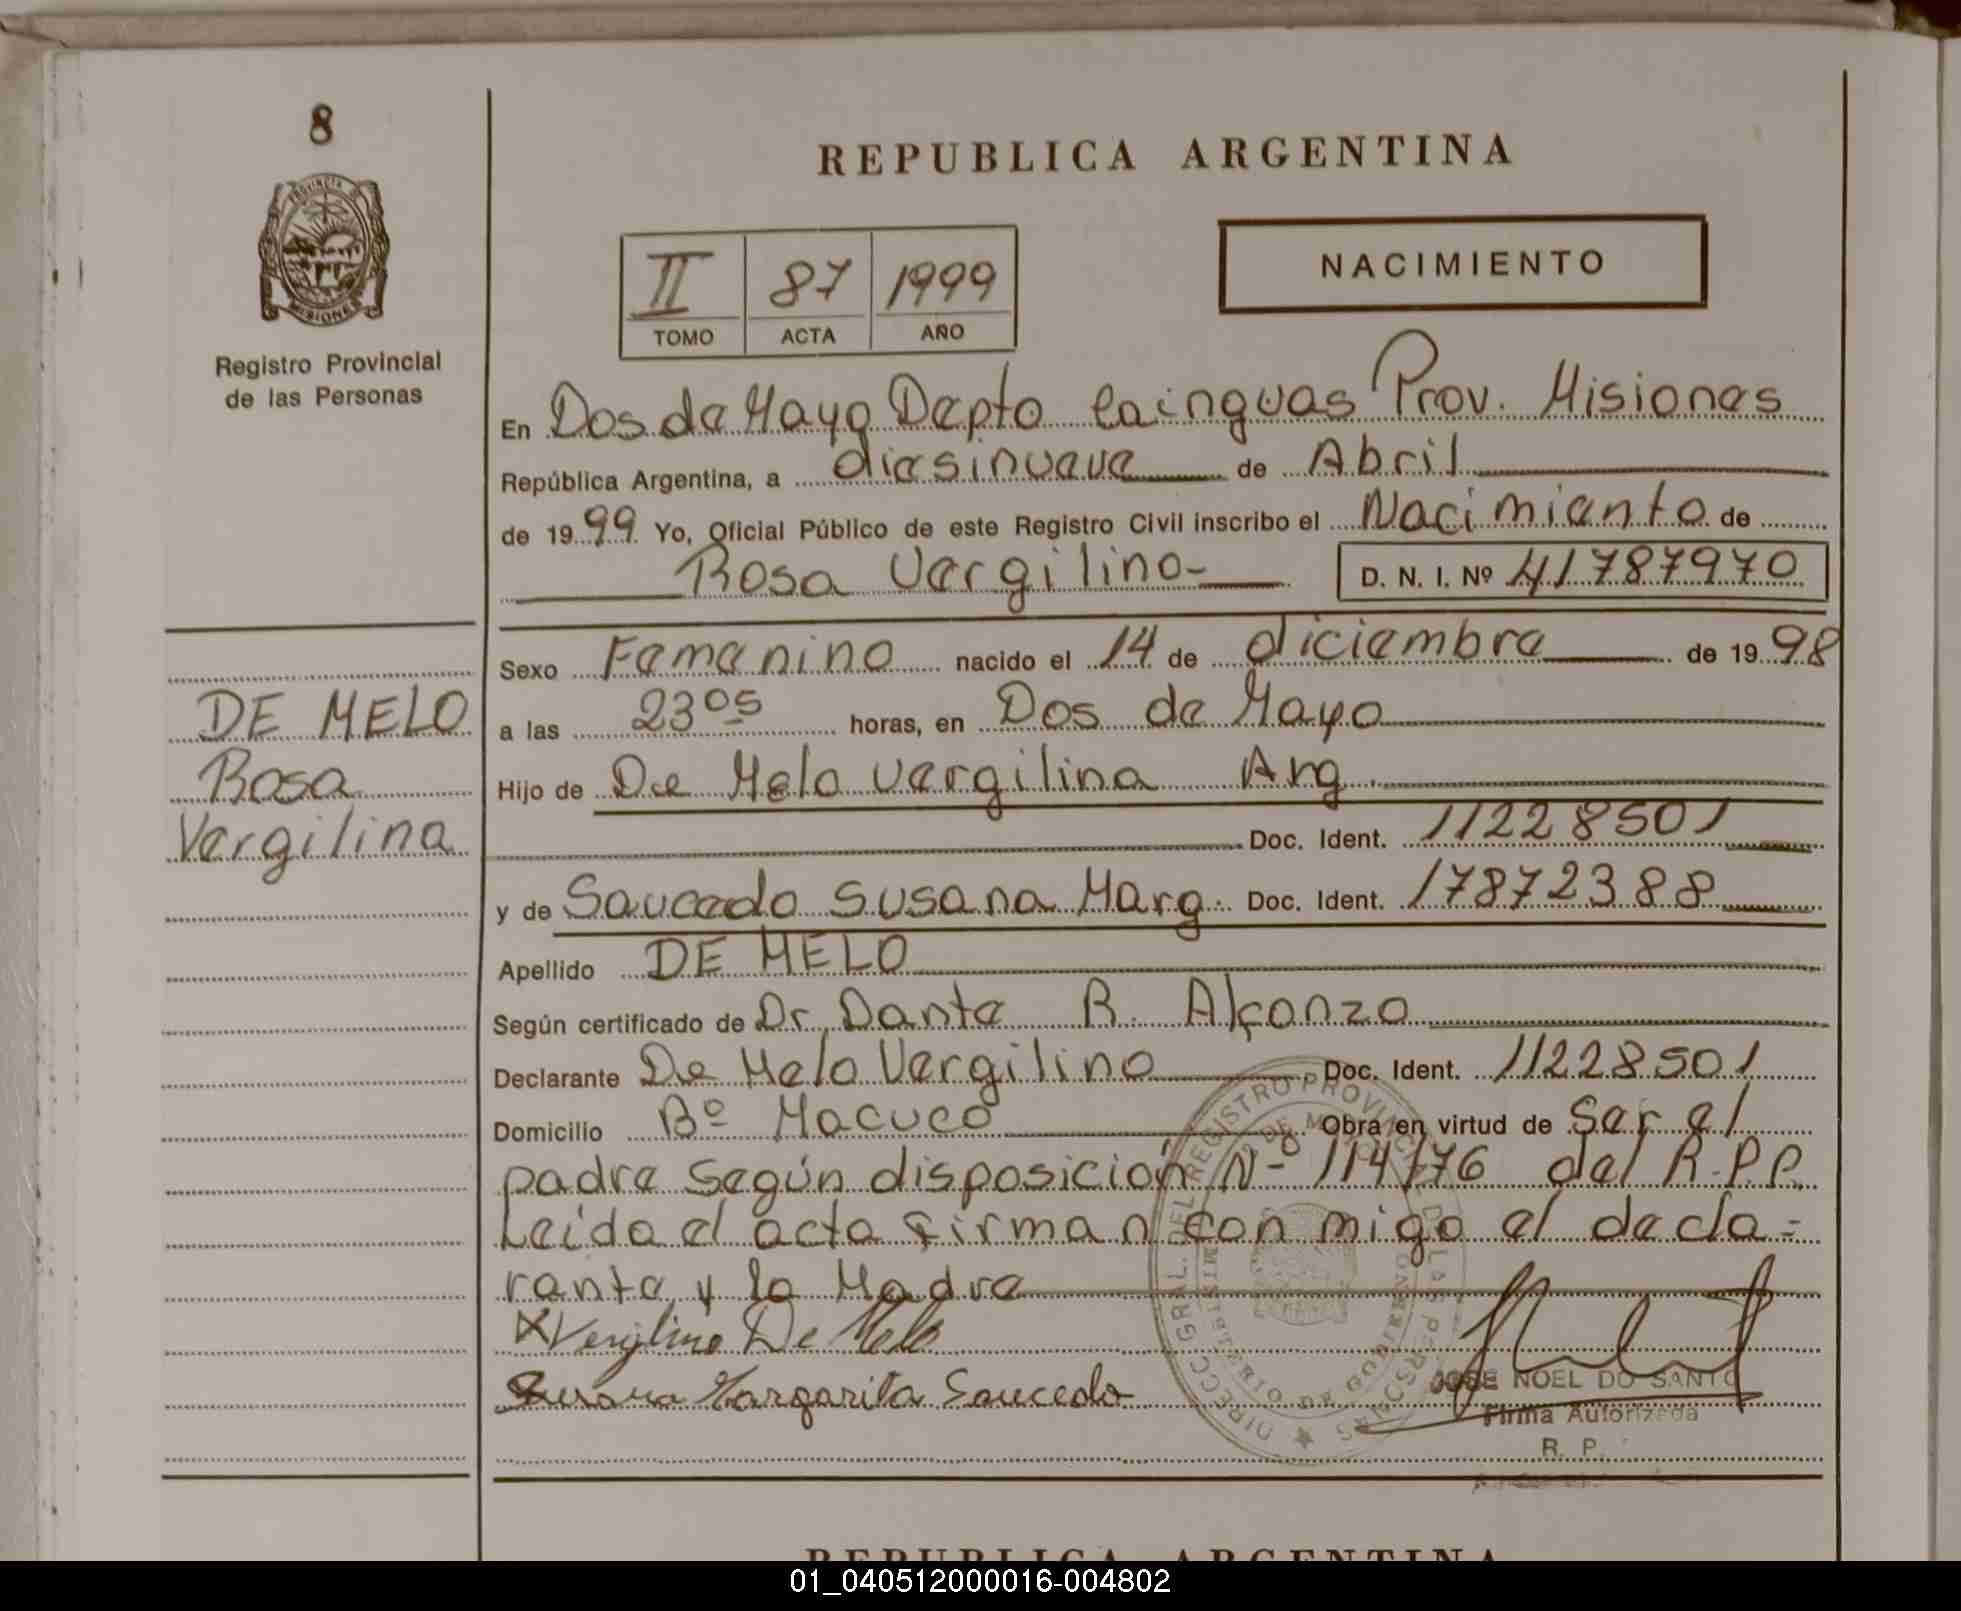 8
PROVINCIA DE
MISIONES
Registro Provincial
de las Personas
REPUBLICA ARGENTINA
II 87 1999
TOMO ACTA AÑO
NACIMIENTO
En Dos de Mayo Depto Cainguas Prov. Misiones
República Argentina, a diesinueve de Abril
de 1999 Yo, Oficial Público de este Registro Civil inscribo el Nacimiento de
Rosa Vergilino- D. N. I. Nº 41787970
Sexo Femenino nacido el 14 de diciembre de 1998
a las 23 05 horas, en Dos de Mayo
Hijo de De Melo Vergilina Arg.
Doc. Ident. 11228501
y de Saucedo Susana Marg. Doc. Ident. 17872388
Apellido DE MELO
Según certificado de Dr. Dante R. Alfonzo
Declarante De Melo Vergilino Doc. Ident. 11228501
Domicilio Bº Macuco Obra en virtud de Ser el
padre según disposición Nº 114/76 del R.P.P.
Leída el acta firman con migo el decla=
rante y la Madre
X Vergilino De Melo
Susana Margarita Saucedo
DE MELO
Rosa
Vergilina
DIRECC. GRAL. DEL REGISTRO PROVINCIAL DE LAS PERSONAS
MINISTERIO DE GOBIERNO
JOSE NOEL DO SANTO
Firma Autorizada
R. P.
REPUBLICA ARGENTINA
01_040512000016-004802